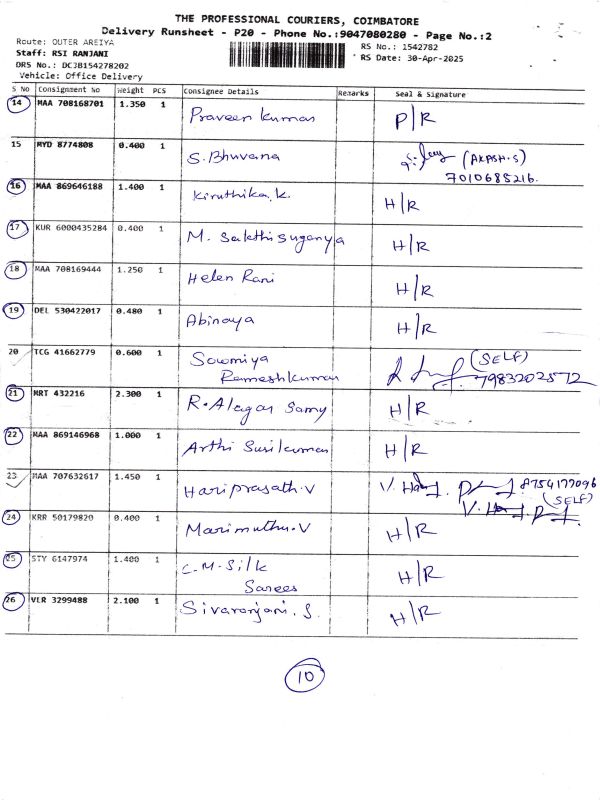 THE PROFESSIONAL COURIERS, COIMBATORE
Delivery Runsheet - P20 - Phone No.:9047080280 - Page No.:2
Route: OUTER AREIYA
RS No.: 1542782
Staff: RSI RANJANI
RS Date: 30-Apr-2025
DRS No.: DCJB154278202
Vehicle: Office Delivery
S No Consignment No Weight PCS Consignee Details Remarks Seal & Signature
14 MAA 708168701 1.350 1 Praveen kumar P/R
15 MYD 8774808 0.400 1 S. Bhuvana (AKASH.S)
7010685216.
16 MAA 869646188 1.400 1 Kiruthika.k. H/R
17 KUR 6000435284 0.400 1 M. Sakthi suganya H/R
18 MAA 708169444 1.250 1 Helen Rani H/R
19 DEL 530422017 0.480 1 Abinaya H/R
20 TCG 41662779 0.600 1 Sowmiya (SELF)
Rameshkumar 7983202572
21 MRT 432216 2.300 1 R. Alagar Samy H/R
22 MAA 869146968 1.000 1 Arthi Susikumar H/R
23 MAA 707632617 1.450 1 Hariprasath.V 8754177096
(SELF)
24 KRR 50179820 0.400 1 Marimuthu.V H/R
25 STY 6147974 1.400 1 C.M. Silk H/R
Sarees
26 VLR 3299488 2.100 1 Sivaranjani. S. H/R
10